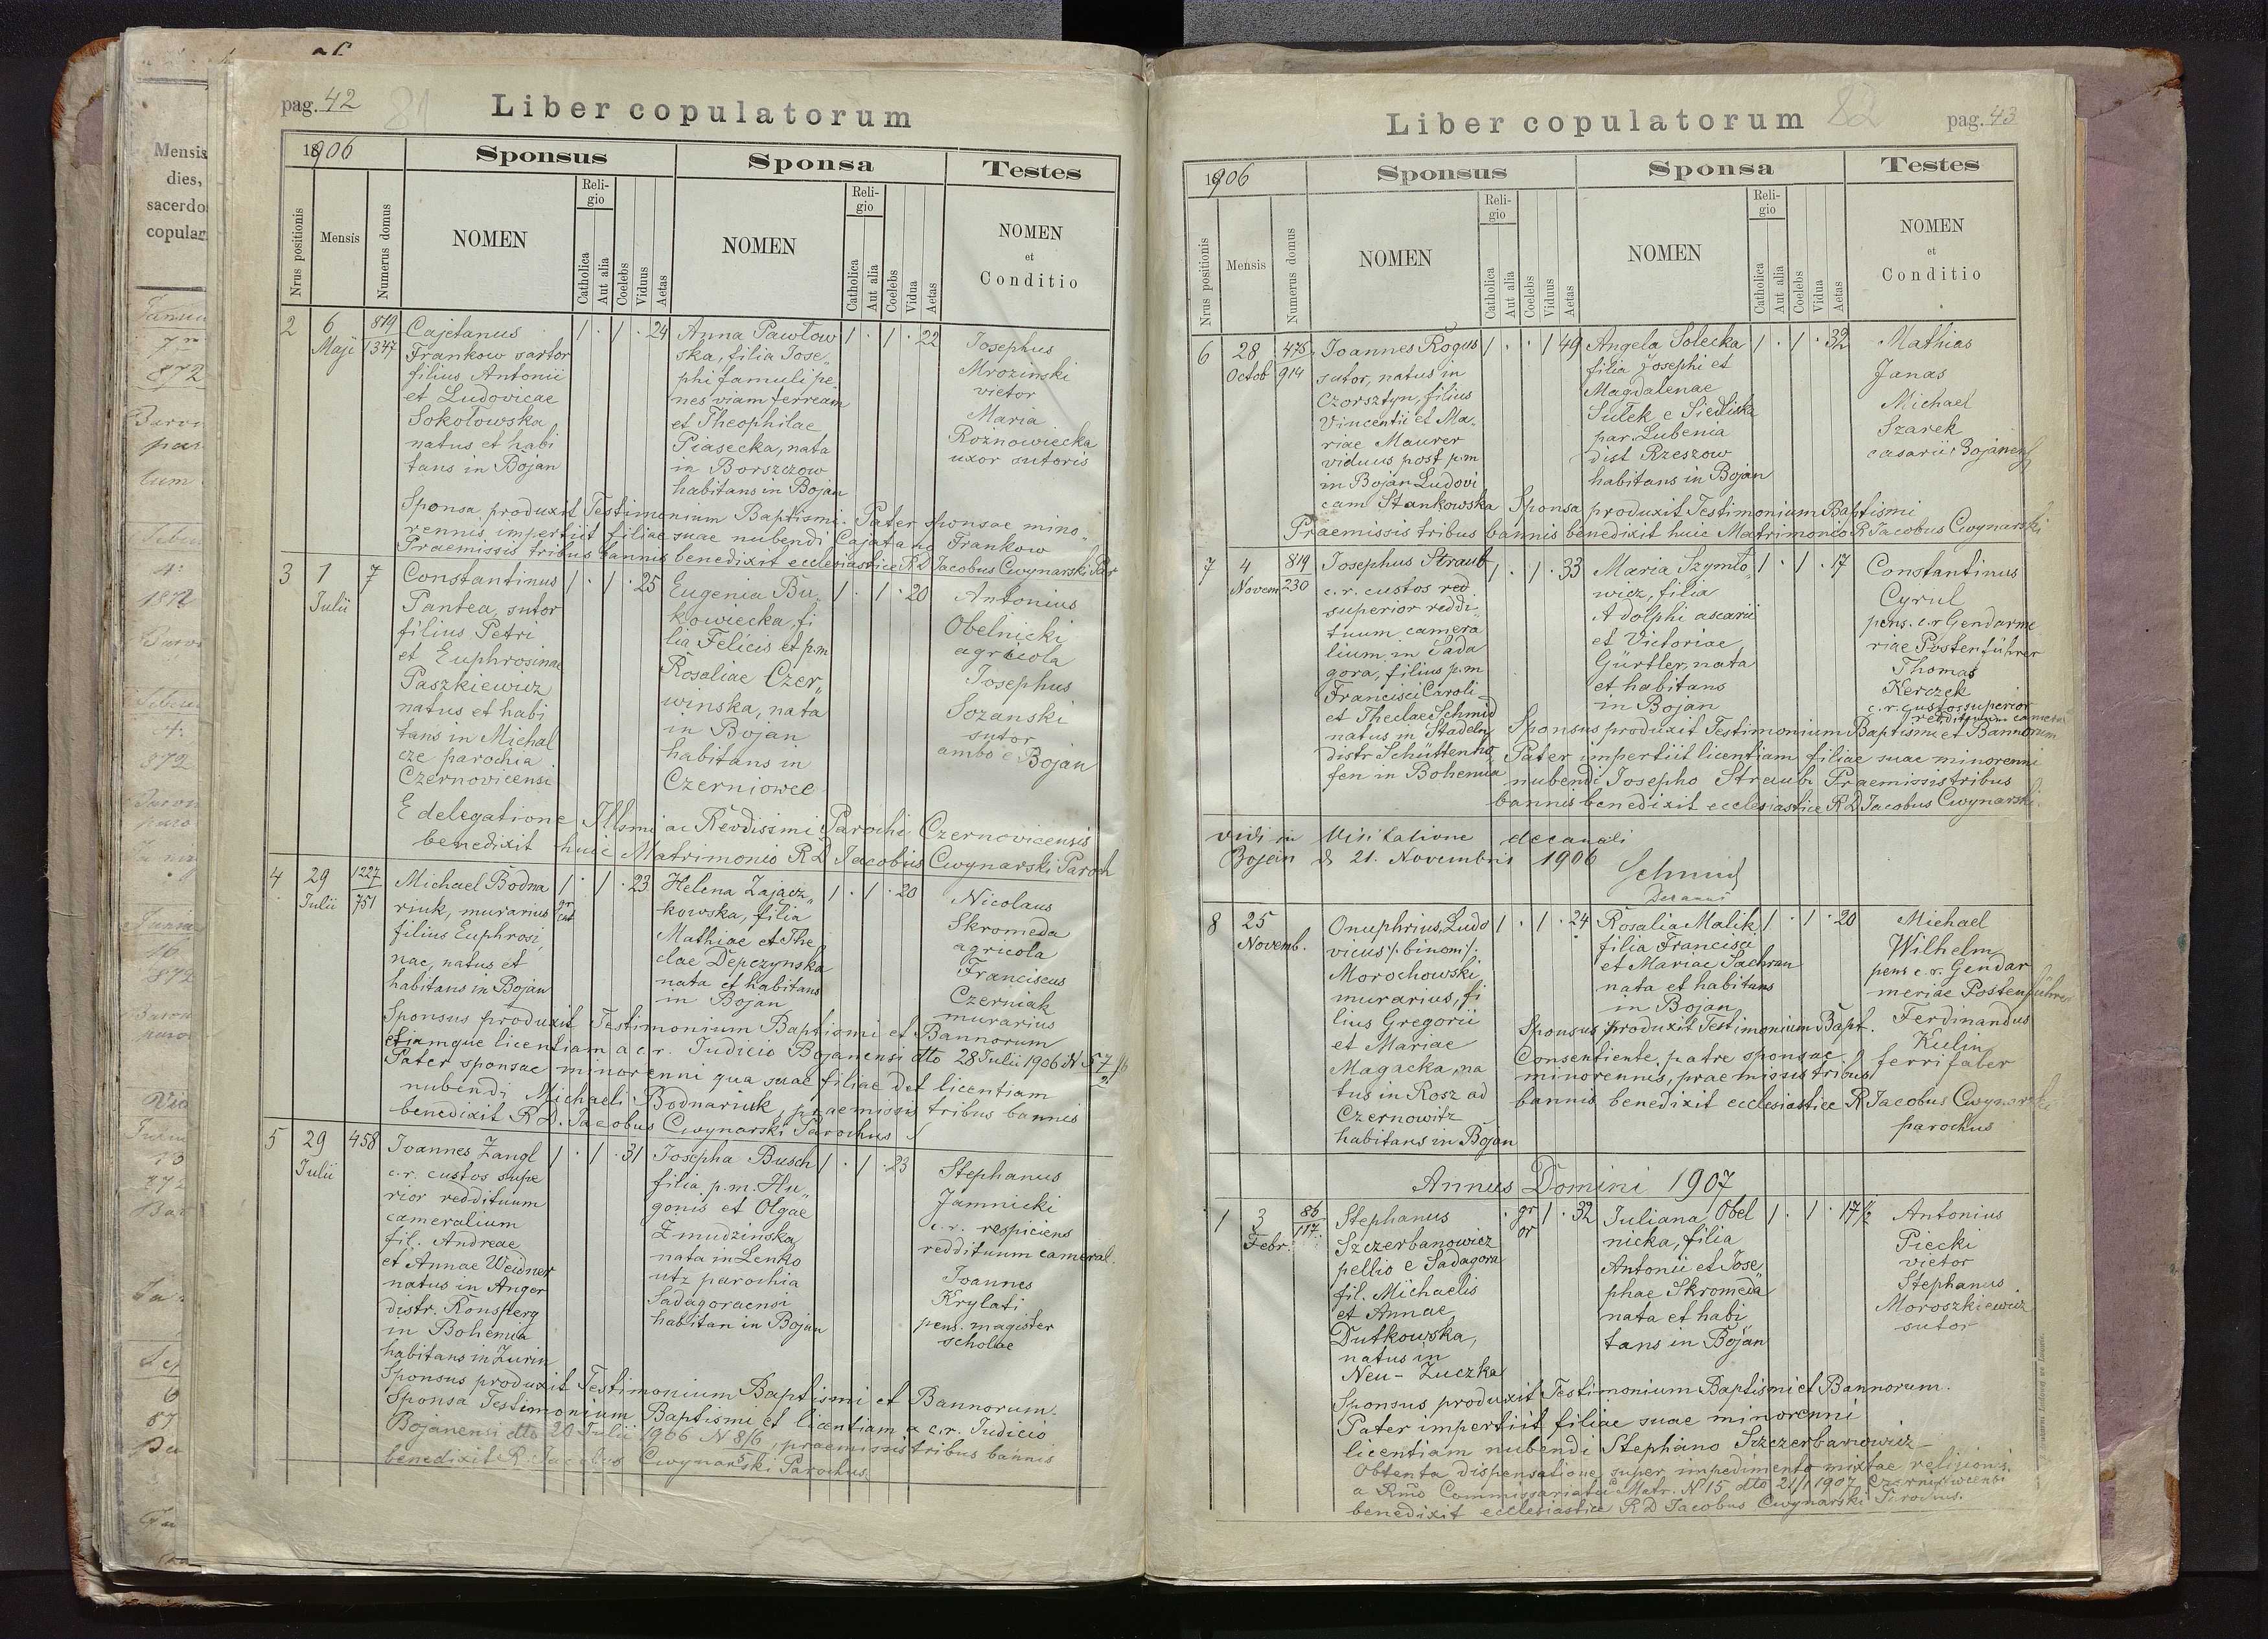 pag. 42
Liber copulatorum
1906
Sponsus
Sponsa
Testes
Nrus positionis
Mensis
Numerus domus
NOMEN
Religio
Catholica
Aut alia
Coelebs
Viduus
Aetas
NOMEN
Religio
Catholica
Aut alia
Coelebs
Vidua
Aetas
NOMEN
et
Conditio
2
6
Maji
819
1347
Cajetanus
Frankow sartor
filius Antonii
et Ludovicae
Sokołowska
natus et habi
tans in Bojan
1 . 1 . 24
Anna Pawłow
ska, filia Jose„
phi famuli pe„
nes viam ferream
et Theophilae
Piasecka, nata
in Borszczow
habitans in Bojan
1 . 1 . 22
Josephus
Mrozinski
vietor
Maria
Roznowiecka
uxor sutoris
Sponsa produxit Testimonium Baptismi. Pater sponsae mino„
rennis, impertiit filiae suae nubendi Cajatano Frankow
Praemissis tribus bannis benedixit ecclesiastice R D Jacobus Cwynarski Par
3
1
Julii
7
Constantinus
Pantea, sutor
filius Petri
et Euphrosinae
Paszkiewicz
natus et habi
tans in Michal
cze parochia
Czernovicensi
1 . 1 . 25
Eugenia Bu„
kowiecka, fi
lia Felicis et p.m
Rosaliae Czer„
winska, nata
in Bojan
habitans in
Czerniowce
1 . 1 . 20
Antonius
Obelnicki
agricola
Josephus
Sozanski
sutor
ambo e Bojan
E delegatione Illsmi ac Revdissimi Parochi Czernovicensis
benedixit huic Matrimonio R D Jacobus Cwynarski Paroch
4
29
Julii
1227
751
Michael Bodna
riuk, murarius
filius Euphrosi„
nae, natus et
habitans in Bojan
1 . 1 . 23
gr
cat
Helena Zającz„
kowska, filia
Mathiae et The
clae Depczynska
nata et habitans
in Bojan
1 . 1 . 20
Nicolaus
Skromeda
agricola
Franciscus
Czerniak
murarius
Sponsus produxit Testimonium Baptismi et Bannorum
etiamque licentiam a c.r. Judicio Bojanensi dto 28 Julii 1906 N
Pater sponsae minorenni qua suae filiae det licentiam
nubendi Michaeli Bodnariuk, praemissis tribus bannis
benedixit R D. Jacobus Cwynarski Parochus
5
29
Julii
458
Joannes Zangl
c.r. custos supe
rior reddituum
cameralium
fil. Andreae
et Annae Weidner
natus in Anger
distr. Ronsperg
in Bohemia
habitans in Zurin
1 . 1 . 31
Josepha Busch
filia p.m. Hu„
gonis et Olgae
Zmudzinska
nata in Lenko
utz parochia
Sadagoraensi
habitan in Bojan
1 . 1 . 23
Stephanus
Jamnicki
c.r. respiciens
reddituum cameral.
Joannes
Krylati
pens. magister
scholae
Sponsus produxit Testimonium Baptismi et Bannorum.
Sponsa Testimonium Baptismi et licentiam a c.r. Judicio
Bojanensi dto 20 Julii 1906 N 8/6, praemissis tribus bannis
benedixit R. Jacobus Cwynarski Parochus
Liber copulatorum
82
pag. 43
1906
Sponsus
Sponsa
Testes
Nrus positionis
Mensis
Numerus domus
NOMEN
Religio
Catholica
Aut alia
Coelebs
Viduus
Aetas
NOMEN
Religio
Catholica
Aut alia
Coelebs
Vidua
Aetas
NOMEN
et
Conditio
6
28
Octob
475
914
Joannes Rogus
sutor, natus in
Czorsztyn, filius
Vincentii et Ma„
riae Maurer
viduus post p.m
in Bojan Ludovi
cam Stankowska
1 . . 1 49
Angela Solecka
filia Josephi et
Magdalenae
Sułek e Siedliska
par. Lubenia
dist Rzeszow
habitans in Bojan
1 . 1 . 32
Mathias
Janas
Michael
Szarek
casarii Bojanens
Sponsa produxit Testimonium Baptismi
Praemissis tribus bannis benedixit huic Matrimonio R Jacobus Cwynarski
7
4
Novem
819
230
Josephus Straub
c.r. custos red
superior reddi„
tuum camera
lium in Sada
gora, filius p.m
Francisci Caroli
et Theclae Schmid
natus in Stadeln
distr Schüttenho„
fen in Bohemia
1 . 1 . 33
Maria Szymło„
wicz, filia
Adolphi ascarii
et Victoriae
Gürtler, nata
et habitans
in Bojan
1 . 1 . 17
Constantinus
Cyrul
pens. c.r Gendarme
riae Postenführer
Thomas
Kerczek
c.r. custos superior
reddituum cameral
Sponsus produxit Testimonium Baptismi et Bannorum
Pater impertiit licentiam filiae suae minorenni
nubendi Josepho Straub. Praemissis tribus
bannis benedixit ecclesiastice R D Jacobus Cwynarski.
vidi in Visitatione decanali
Bojan d 21. Novembris 1906
Schmid
Decanus
8
25
Novemb.
Onuphrius, Ludo
vicus /: binom :/
Morochowski
murarius, fi
lius Gregorii
et Mariae
Magacka, na
tus in Rosz ad
Czernowitz
habitans in Bojan
1 . 1 . 24
Rosalia Malik
filia Francisci
et Mariae Sachran
nata et habitans
in Bojan
1 . 1 . 20
Michael
Wilhelm
pens c.r. Gendar
meriae Postenführer
Ferdinandus
Kulin
ferrifaber
Sponsus produxit Testimonium Bapt.
Consentiente patre sponsae
minorennis, praemissis tribus
bannis benedixit ecclesiastice R Jacobus Cwynarski
parochus
Annus Domini 1907
1
3
Febr.
86
117.
Stephanus
Szczerbanowicz
pellio e Sadagora
fil. Michaelis
et Annae
Dutkowska,
natus in
Neu- Zuczka
. gr or 1 . 32
Juliana Obel
nicka, filia
Antonii et Jose
phae Skromeda
nata et habi„
tans in Bojan
1 . 1 . 17½
Antonius
Piecki
vietor
Stephanus
Moroszkiewicz
sutor
Sponsus produxit Testimonium Baptismi et Bannorum.
Pater impertiit filiae suae minorenni
licentiam nubendi Stephano Szczerbanowicz
Obtenta dispensatione super impedimento mixtae religionis
a Rmo Commissariatu Matr. N 15 dto 21/1 1907 Czernowicensi
benedixit ecclesiastice R D Jacobus Cwynarski Parochus.
Mensis
dies,
sacerdo
copular